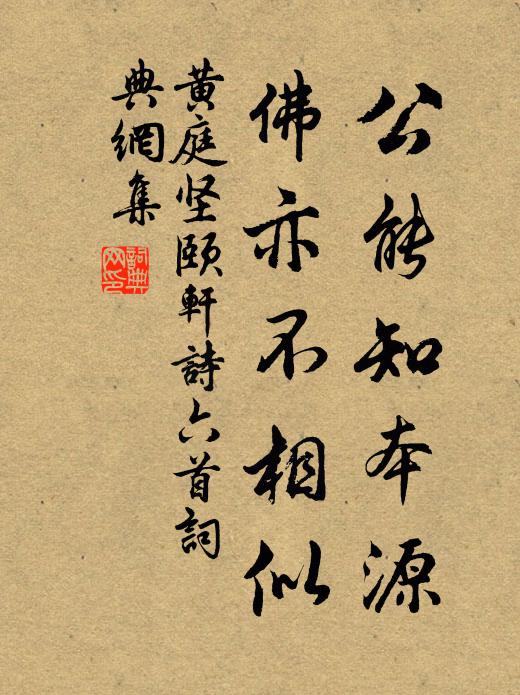 公能知本源
佛亦不相似
黃庭坚頤軒詩六首詞
典網集
詞典
网印